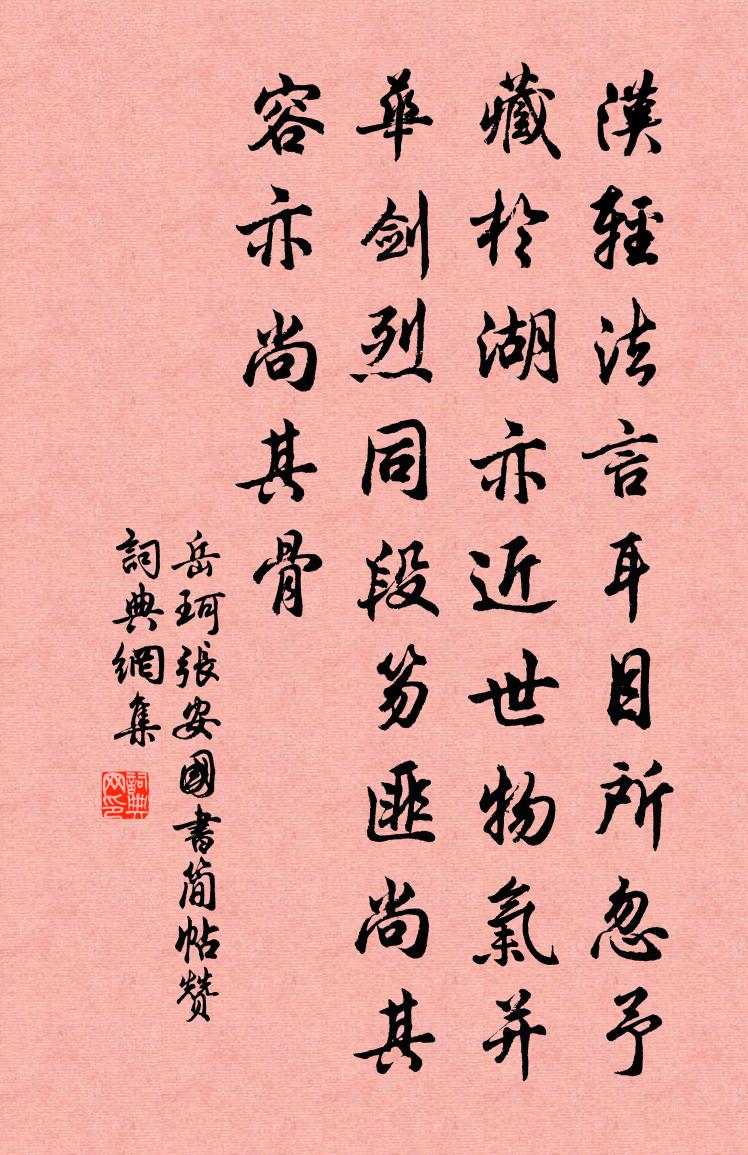 漢輕法言耳目所忽予
藏於湖亦近世物氣并
華劍烈同段笏匪尚其
容亦尚其骨
岳珂張安國書簡帖贊
詞典網集
詞典网印